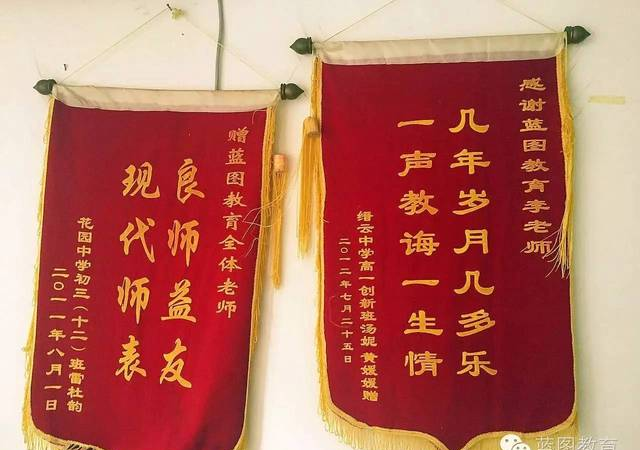 赠蓝图教育全体老师
良师益友
现代师表
花园中学初三(十二)班雷杜韵
二〇一一年八月一日
感谢蓝图教育李老师
几年岁月几多乐
一声教诲一生情
缙云中学高一创新班汤妮 黄媛媛赠
二〇一二年七月二十五日
蓝图教育